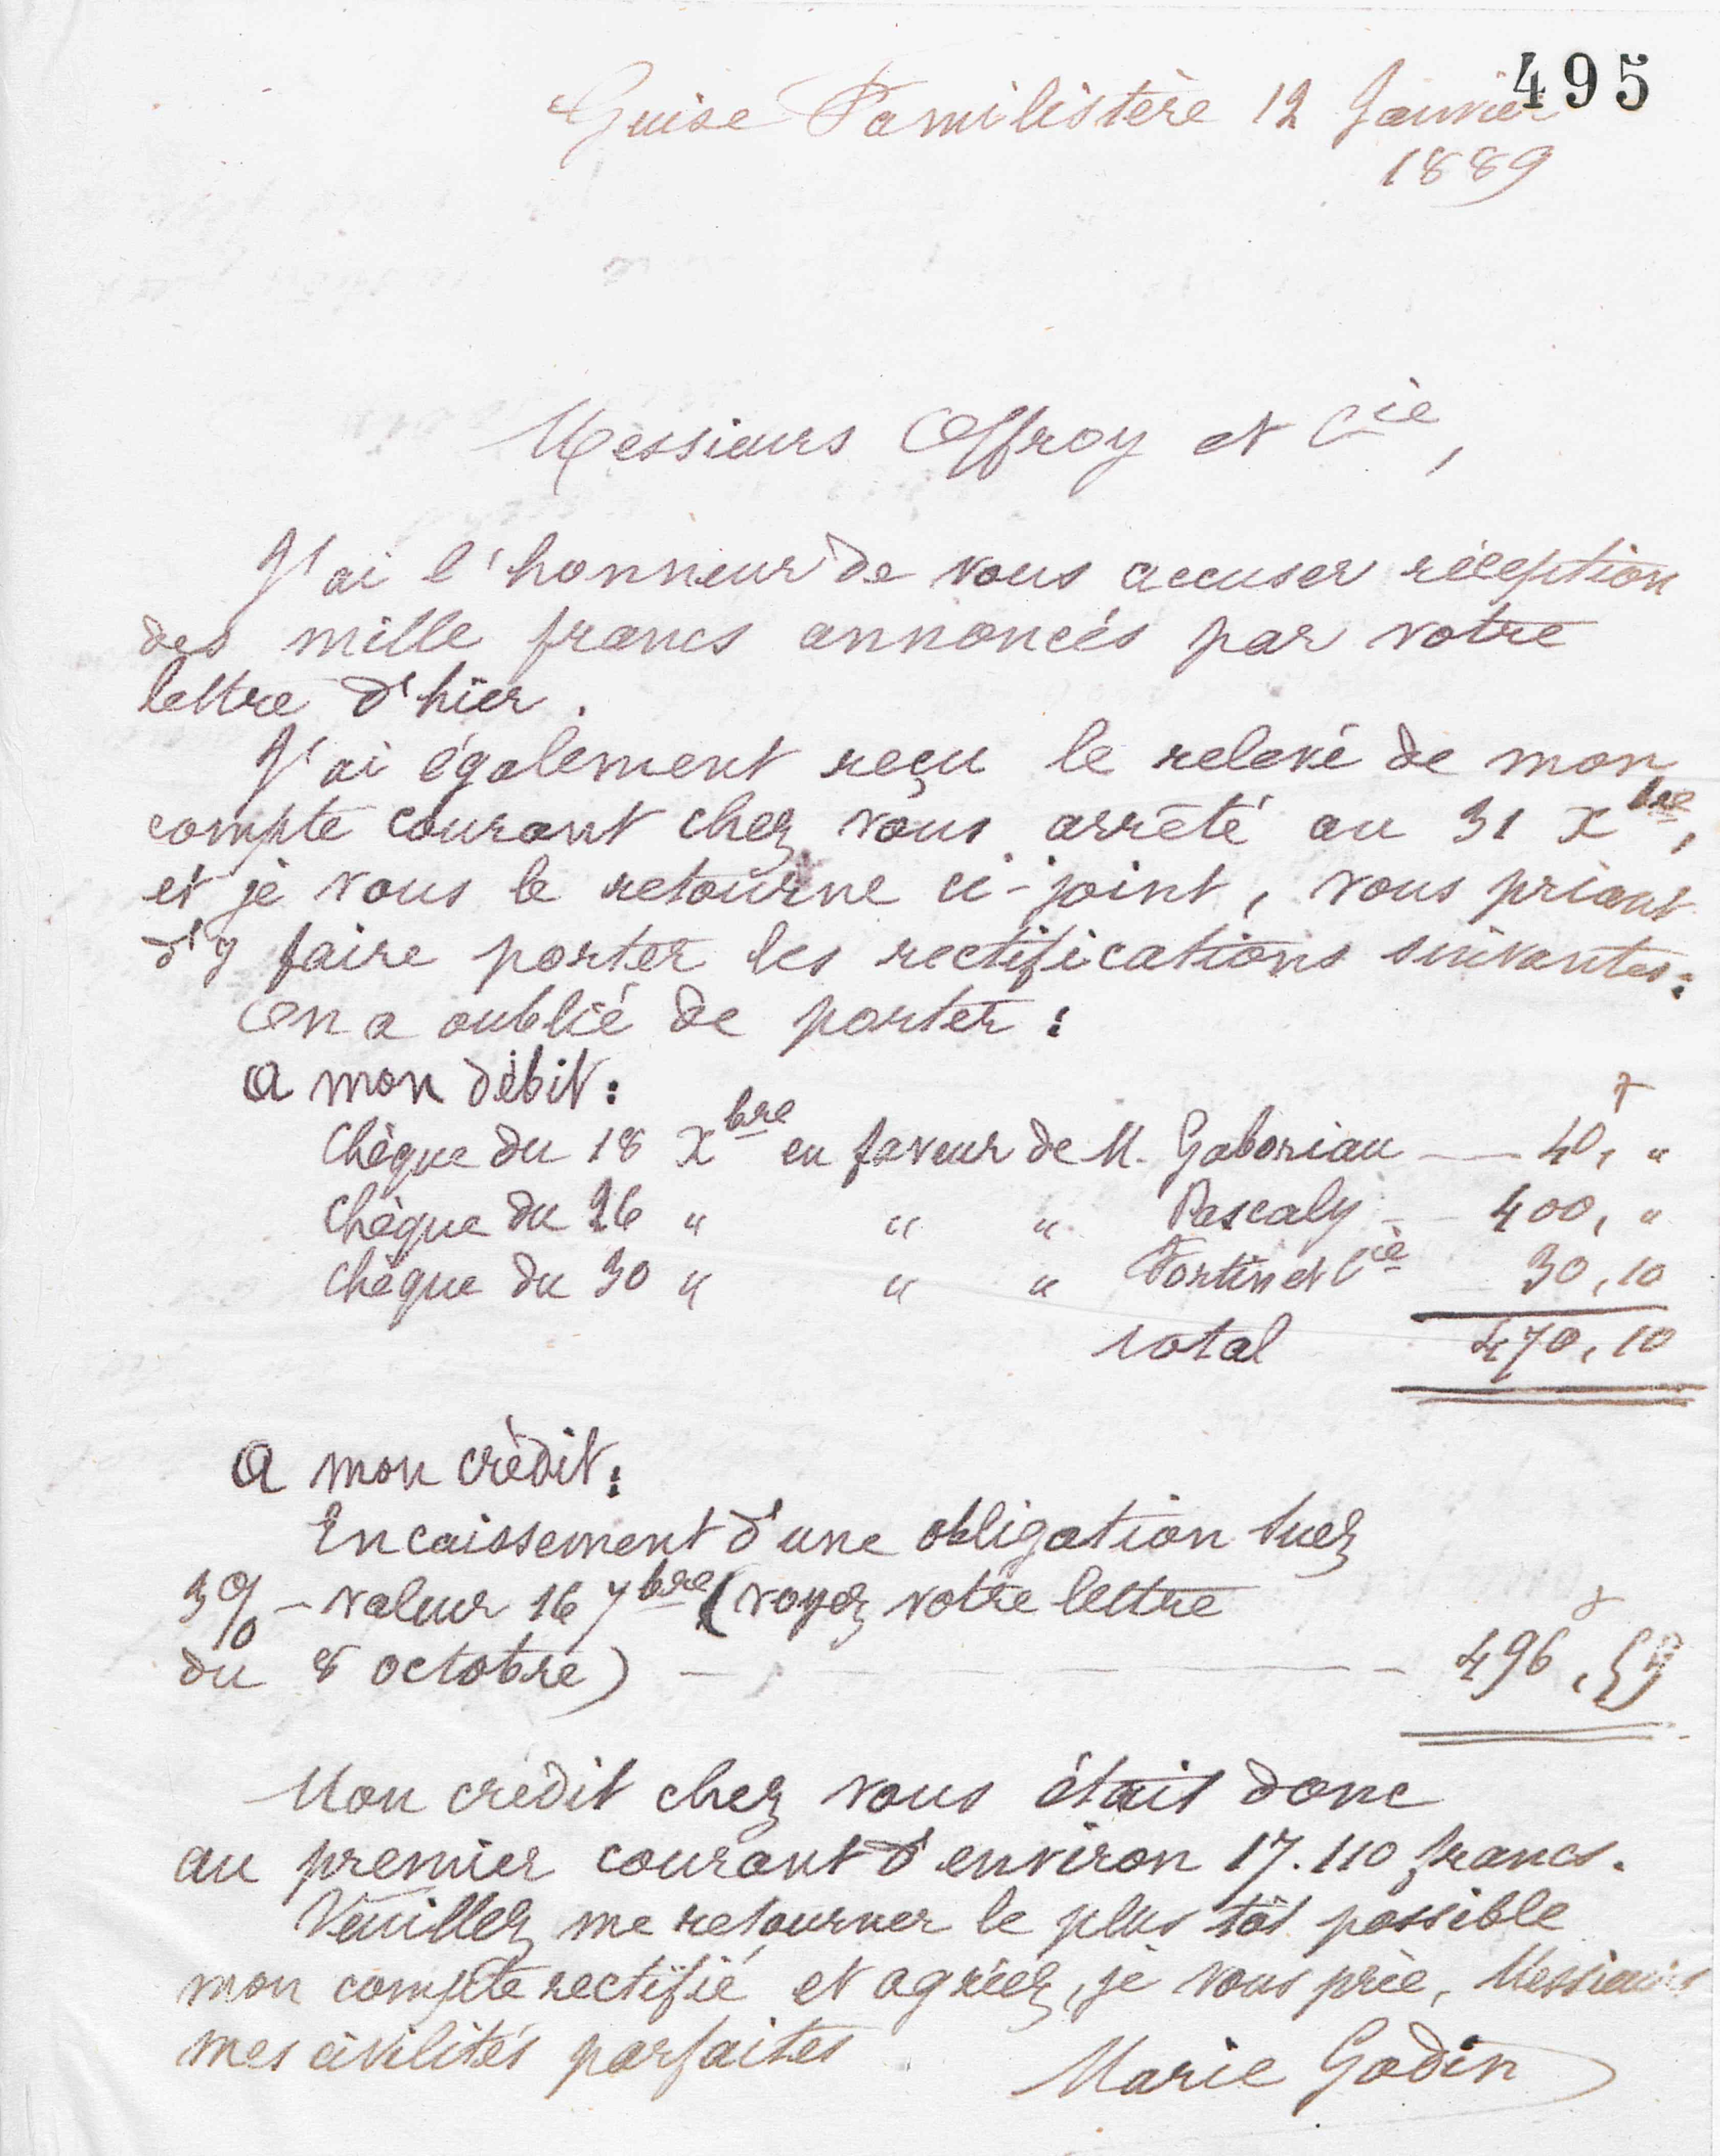 495
Guise Familistère 12 Janvier
1889
Messieurs Offroy et Cie,
J'ai l'honneur de vous accuser réception
des mille francs annoncés par votre
lettre d'hier.
J'ai également reçu le relevé de mon
compte courant chez vous arrêté au 31 Xbre,
et je vous le retourne ci-joint, vous priant
d'y faire porter les rectifications suivantes:
On a oublié de porter :
A mon débit :
Chèque du 18 Xbre en faveur de M. Gaboriau — 40, "
Chèque du 26 " " " Pascaly - - 400, "
Chèque du 30 " " " Fortin et Cie 30,10
Total 470,10
A mon crédit :
Encaissement d'une obligation Suez
3% - valeur 16 7bre (voyez votre lettre
du 8 octobre) — — — 496,
Mon crédit chez vous était donc
au premier courant d'environ 17.110 francs.
Veuillez me retourner le plus tôt possible
mon compte rectifié et agréez, je vous prie, Messieurs
mes civilités parfaites
Marie Godin